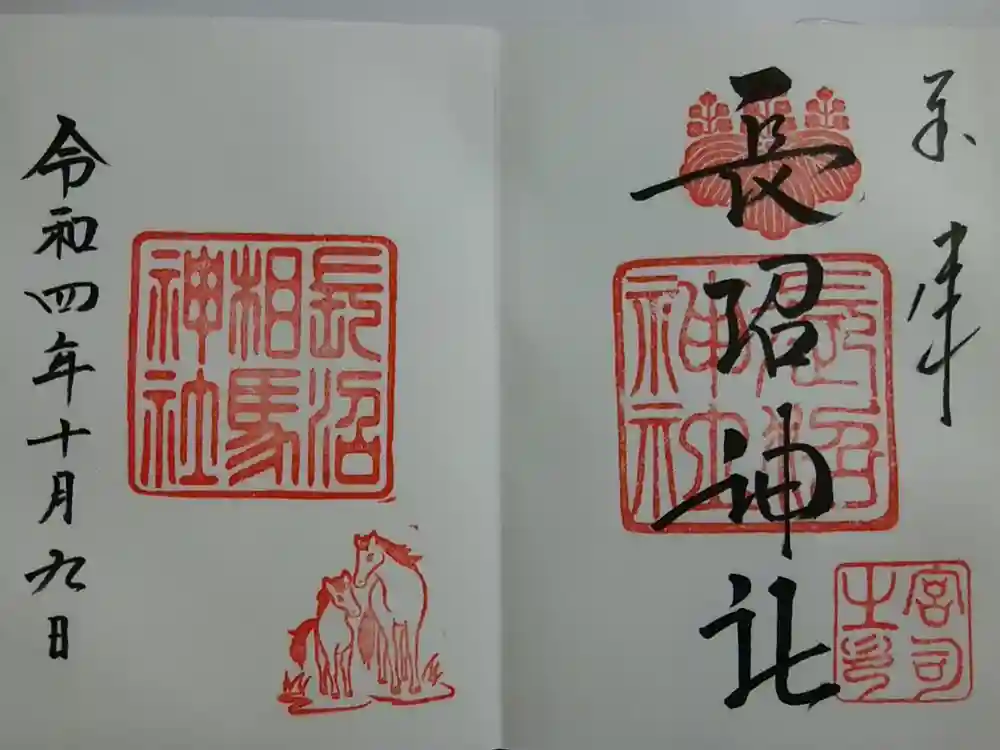 奉拝
長沼神社
長沼
神社
宮司
之印
長沼
相馬
神社
令和四年十月九日